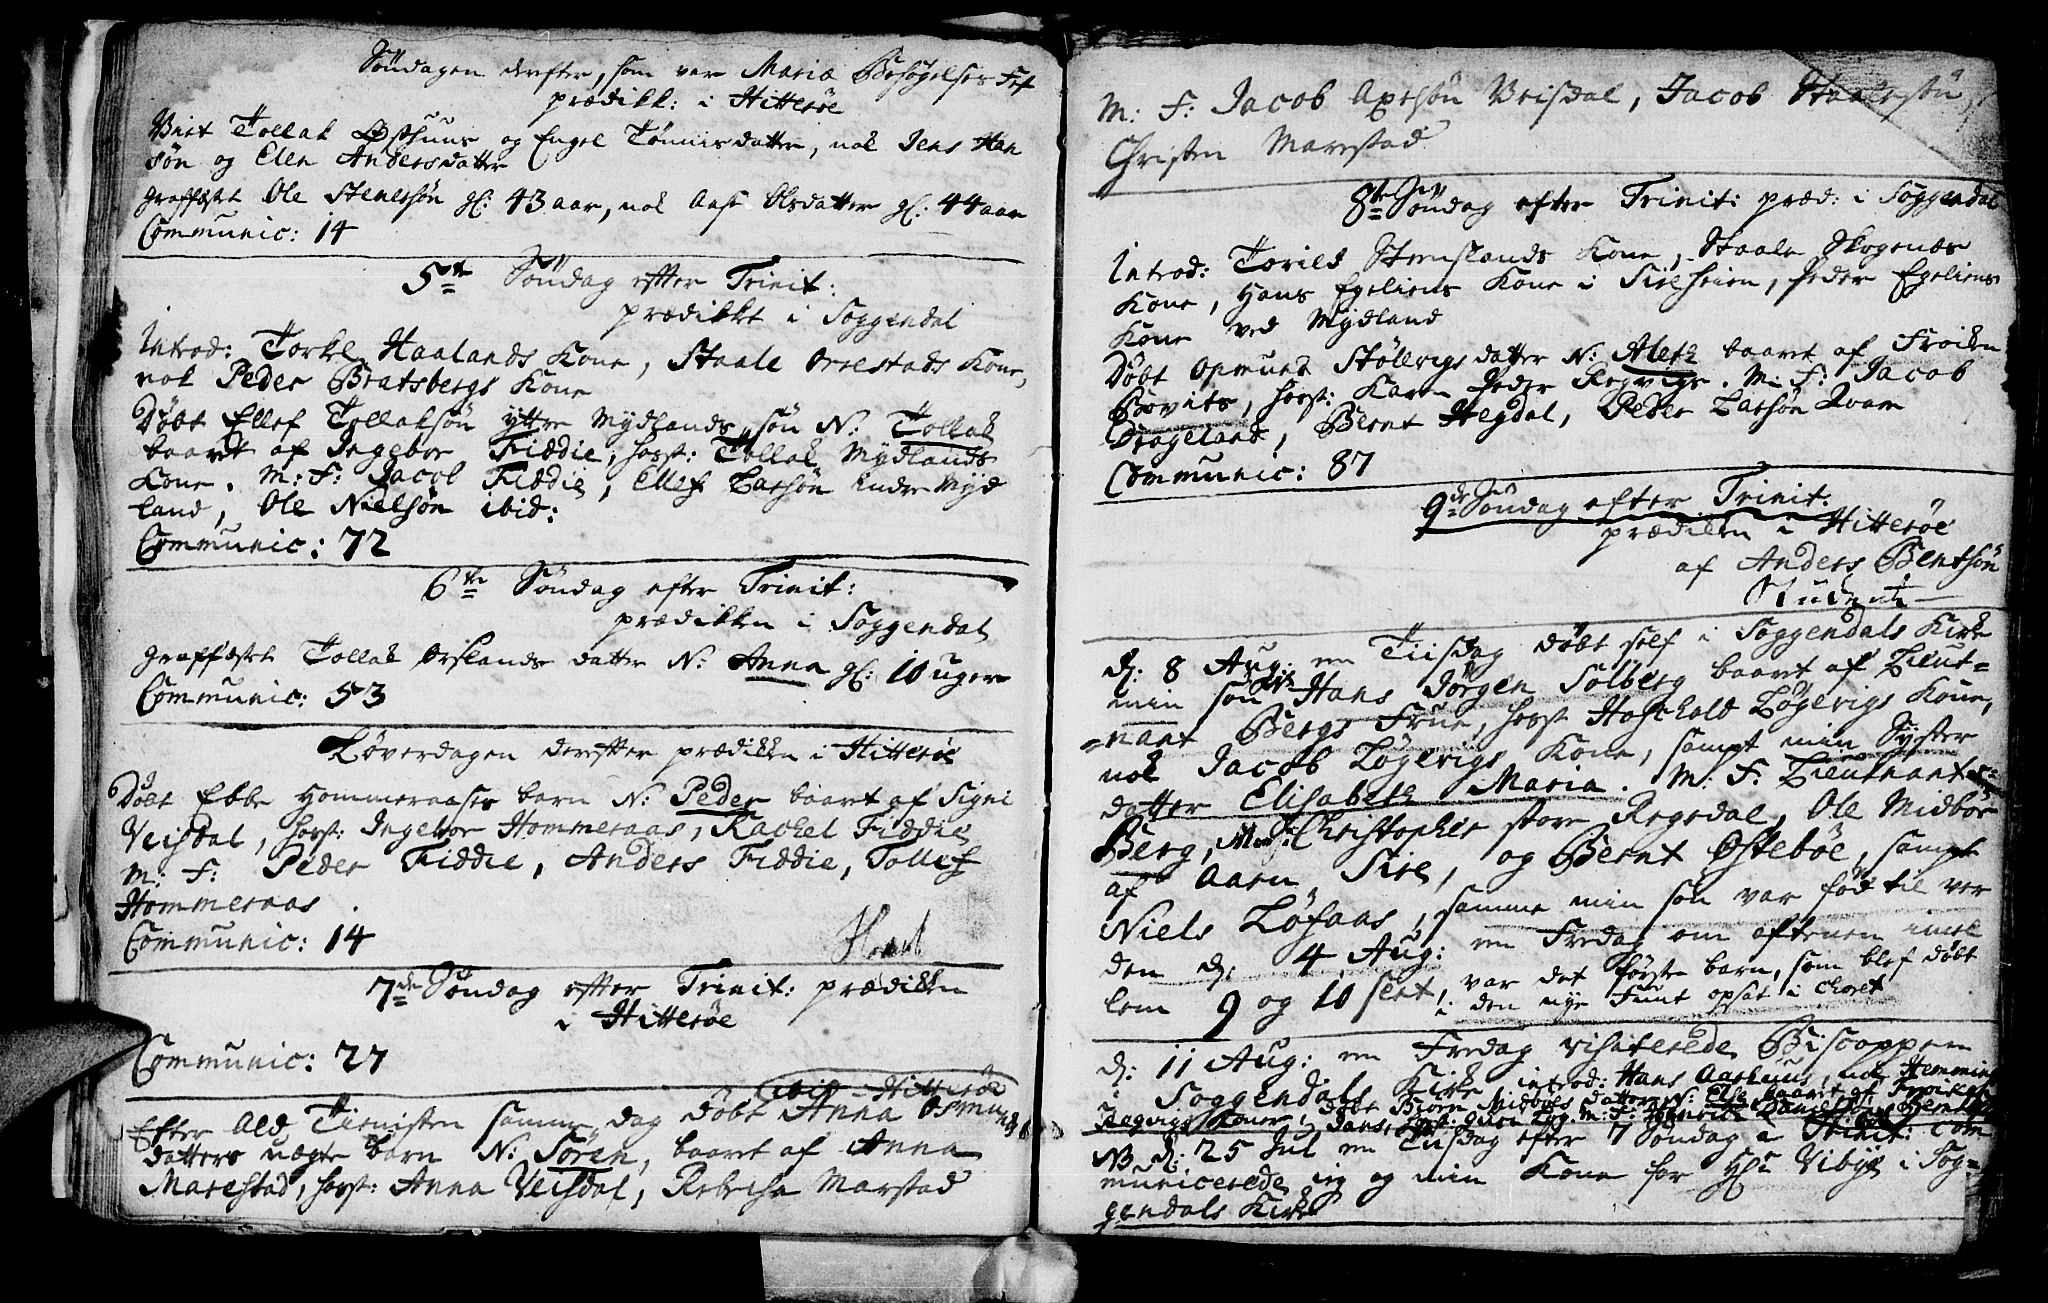 Søndagen derefter, som var Mariæ Besøgelses Fest
prædikk: i Hitterøe
Viet Tollak Østhuus og Engel Tønnisdatter, nok Jens Han
søn og Elen Andersdatter
graffæstet Ole Stenersøn gl: 43 aar, nok Aase Olsdatter gl: 44 aar
Communic: 14
5te Søndag efter Trinit:
prædikket i Soggendal
Introd: Torkel Haalands Kone, Staale Orrestads Kone,
nok Peder Bratsbergs Kone
Døbt Ellef Tollaksøn yttre Mydlands søn N: Tollak
baaret af Ingebor Fiddie, hosst: Tollak Mydlands
Kone. M: F: Jacob Fiddie, Ellef Larsøn indre Myd
land, Ole Nielsøn ibid:
Communic: 72
6te Søndag efter Trinit:
prædikken i Soggendal
graffæstet Tollak Orslands datter N: Anna gl: 10 uger
Communic: 53
Løverdagen derefter prædikken i Hitterøe
Døbt Ebbe Hommeraases barn N: Peder baaret af Signi
Veisdal, hosst: Ingebor Hommeraas, Rachel Fiddie
M: F: Peder Fiddie, Anders Fiddie, Tollef
Hommeraas
Communic: 14
7de Søndag efter Trinit: prædikken
i Hitterøe
Communic: 27
ibid Hitterøe
Efter old Tienisten samme dag døbt Anna Osmunds
datters uægte barn N: Søren, baaret af Anna
Marestad, hosst: Anna Veisdal, Rebecha Marstad
M: F: Jacob Axelsøn Veisdal, Jacob Staalesøn
Christen Marestad
8te Søndag efter Trinit: præd: i Soggendal
Introd: Torild Stenslands Kone, Staale Skogenæs
Kone, Hans Egeliens Kone i Sireheien, Peder Egeliens
Kone ved Mydland
Døbt Opmund Stöllvigs datter N: Aleth baaret af Frøiken
Bovits, hosst: Karen Peder Regvigs. M: F: Jacob
Drageland, Bernt Hegdal, Peder Larsøn Qvam
Communic: 87
9de Søndag efter Trinit:
prædiken i Hitterøe
af Anders Bentsøn
Student
d: 8 Aug: en Tiisdag døbt self i Soggendals Kirke
min søn Hans Jørgen Sølberg baaret af Lieut-
nant Bergs Frue, hosst Haschold Løgevigs Kone,
nok Jacob Løgevigs Kone, sampt min Syster
datter Elisabeth Maria. M: F: Lieutnant
Berg, Christopher store Regedal, Ole Midbøe
af Aaen Sire, og Bernt Østebøe, sampt
Niels Løfaas, samme min søn var fød til ver
den d: 4 Aug: en Fredag om aftenen imel
lem 9 og 10 slet, var det første barn, som blef døbt
i den nye Funt opsat i choret
d: 11 Aug: en Fredag visiterede Biscoppen
i Soggendals Kirke, introd: Hans Aarhuus, nok Hemming
Regvigs Koner, døbt Biørn Midbøes datter N: Else baaret af
NB d: 25 Jul en Tiisdag efter 7 Søndag a Trinit: com
municerede ieg og min Kone for Hr: Vibye i Sog-
gendals Kirke